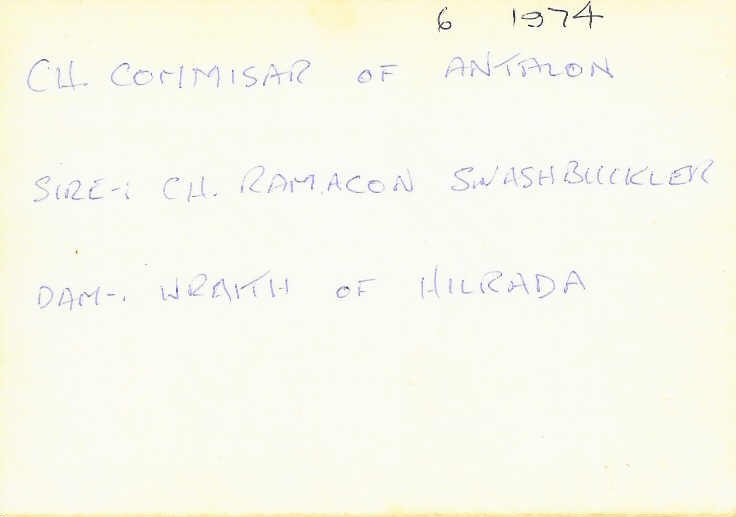 6 1974
CH. COMMISAR OF ANTALON
SIRE-: CH. RAMACON SWASHBUCKLER
DAM-. WRAITH OF HILRADA